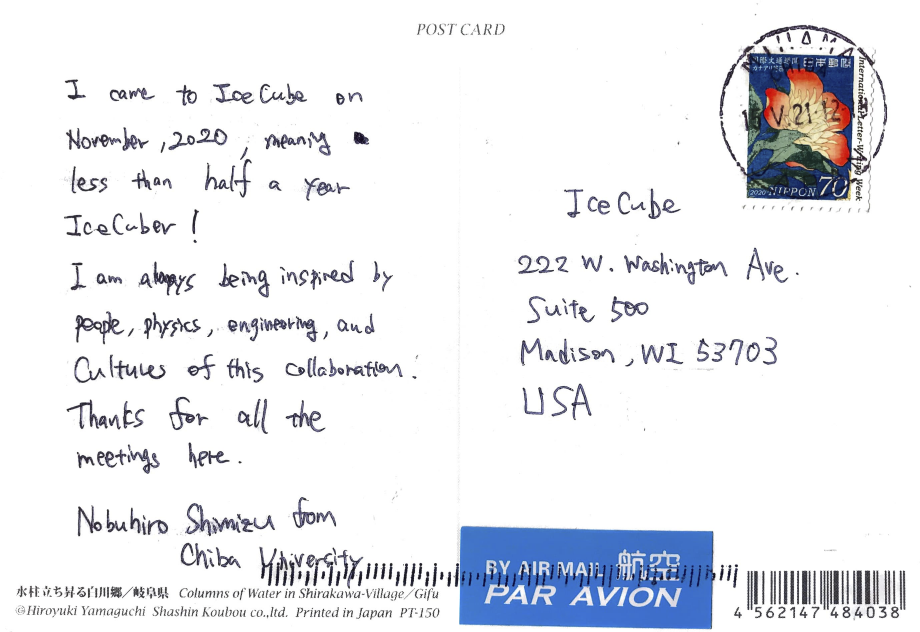 POST CARD
I came to IceCube on
November, 2020, meaning
less than half a year
IceCuber!
I am always being inspired by
people, physics, engineering, and
Cultures of this collaboration!
Thanks for all the
meetings here.
Nobuhiro Shimizu from
Chiba University
水柱立ち昇る白川郷／岐阜県 Columns of Water in Shirakawa-Village／Gifu
©Hiroyuki Yamaguchi Shashin Koubou co.,ltd. Printed in Japan PT-150
日本郵便
International Letter-Writing Week
2020
NIPPON 70
V. 21. 12
IceCube
222 W. Washington Ave.
Suite 500
Madison, WI 53703
USA
BY AIR MAIL 航空
PAR AVION
4 562147 484038